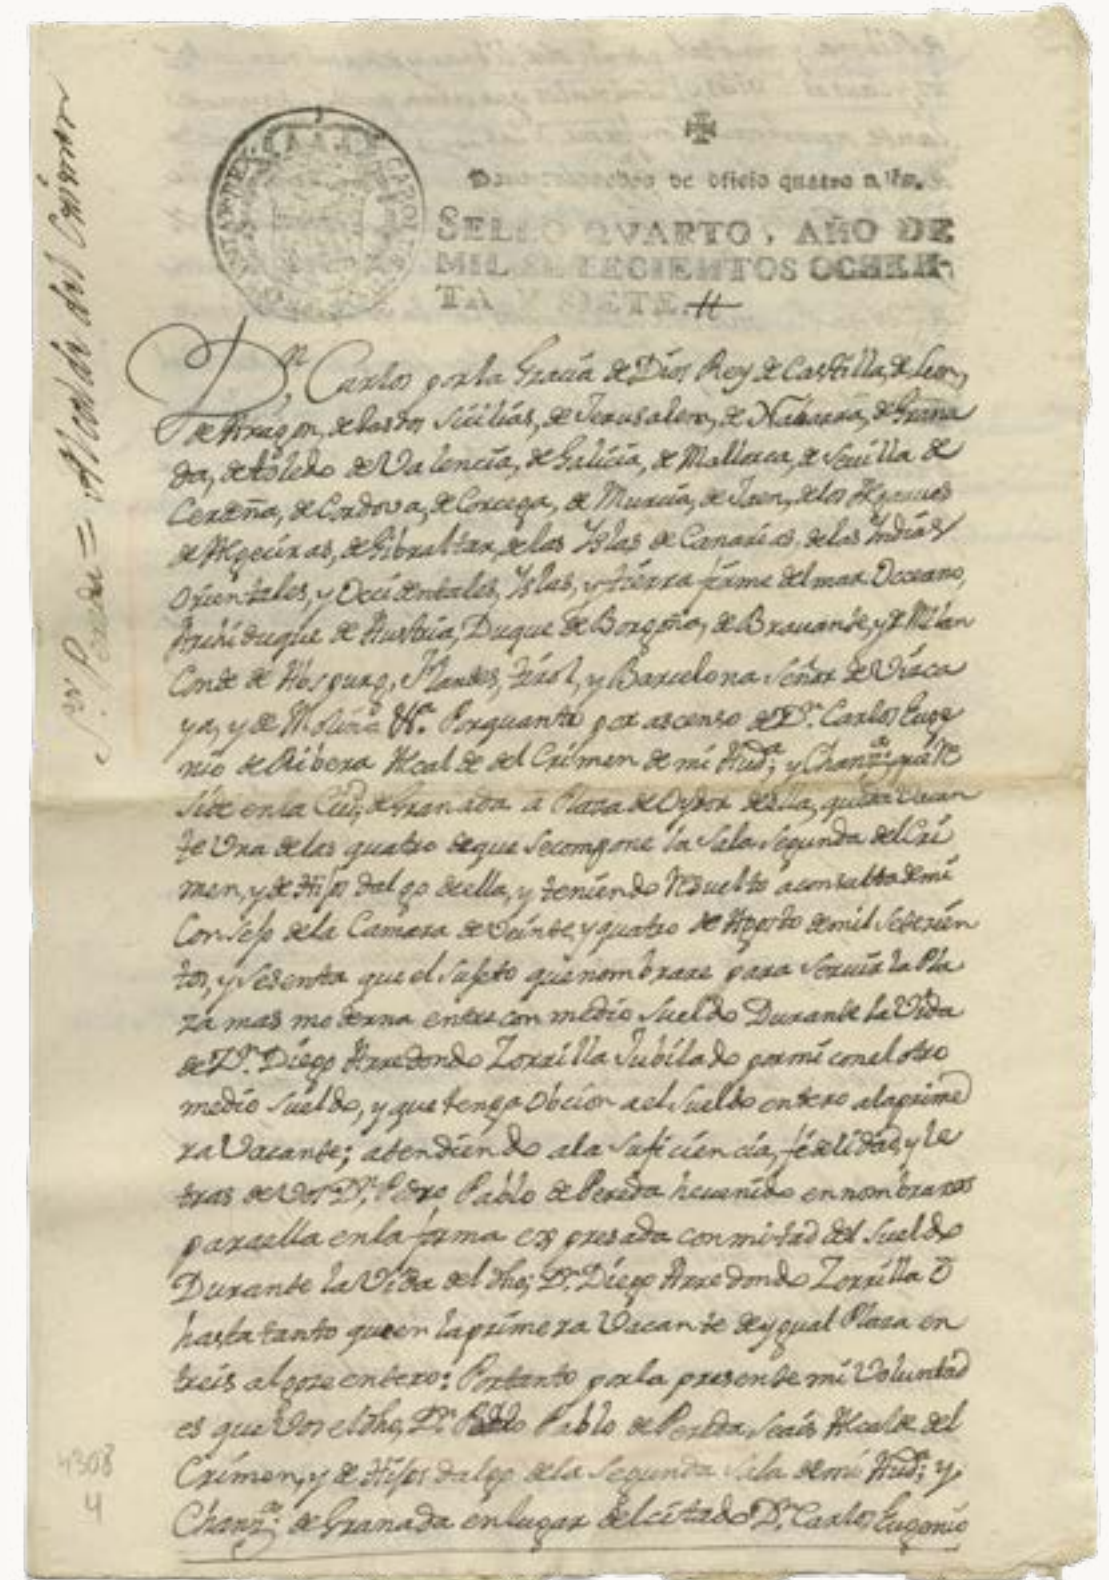 Sr. Pereda = Alcalde del Crimen
CAROL
de oficio quatro mrs.
SELLO QVARTO, AÑO DE
MIL SETECIENTOS OCHEN-
TA Y SIETE.
Dn. Carlos por la Gracia de Dios Rey de Castilla, de Leon,
de Aragon, de las dos Sicilias, de Jerusalem, de Nabarra, de Grana
da, de Toledo de Valencia, de Galicia, de Mallorca, de Sevilla de
Cerdeña, de Cordova, de Corcega, de Murcia, de Jaen, de los Algarves
de Algeciras, de Gibraltar, de las Yslas de Canarias, de las Indias
Orientales, y Occidentales, Yslas, y tierra firme del mar Occeano,
Archiduque de Austria, Duque de Borgoña, de Bravante, y de Milan
Conde de Abspurg, Flandes, Tirol, y Barcelona Señor de Vizca
ya, y de Molina &a. Por quanto por ascenso de Dn. Carlos Euge
nio de Ribera Alcalde del Crimen de mi Auda. y Chanza. que re
side en la Ciud. de Granada a Plaza de Oydor de ella, queda vacan
te Una de las quatro de que se compone la Sala Segunda del Cri
men, y de Hijos dalgo de ella, y teniendo resuelto a consulta de mi
Consejo de la Camara de veinte y quatro de Agosto de mil setecien
tos, y sesenta que el sujeto que nombrare para servir la Pla
za mas moderna entre con medio Sueldo Durante la Vida
de Dn. Diego Arredondo Zorrilla Jubilado por mi con el otro
medio Sueldo, y que tenga obcion a el Sueldo entero a la prime
ra Vacante; atendiendo a la suficiencia, fidelidad, y le
tras de Vos Dn. Pedro Pablo de Pereda he venido en nombraros
para ella en la forma expresada con mitad del Sueldo
Durante la Vida del dho; Dn. Diego Arredondo Zorrilla ō
hasta tanto que en la primera Vacante de ygual Plaza en
treis al goze entero: Por tanto por la presente mi Voluntad
es que Vos el dho, Dn. Pedro Pablo de Pereda, seais Alcalde del
Crimen, y de Hijos dalgo de la Segunda Sala de mi Auda; y
Chanza. de Granada en lugar del citado Dn. Carlos Eugenio
4308
4